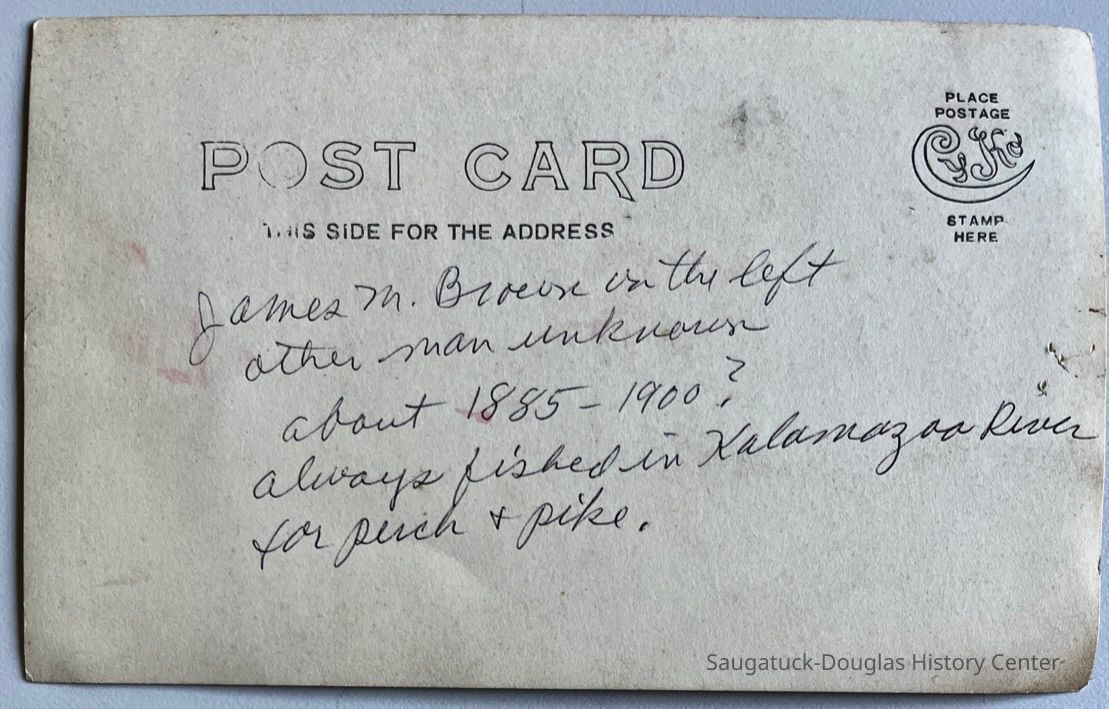 PLACE
POSTAGE
CyKo
STAMP
HERE
POST CARD
THIS SIDE FOR THE ADDRESS
James M. Brown on the left
other man unknown
about 1885-1900?
always fished in Kalamazoo River
for perch + pike.
Saugatuck-Douglas History Center